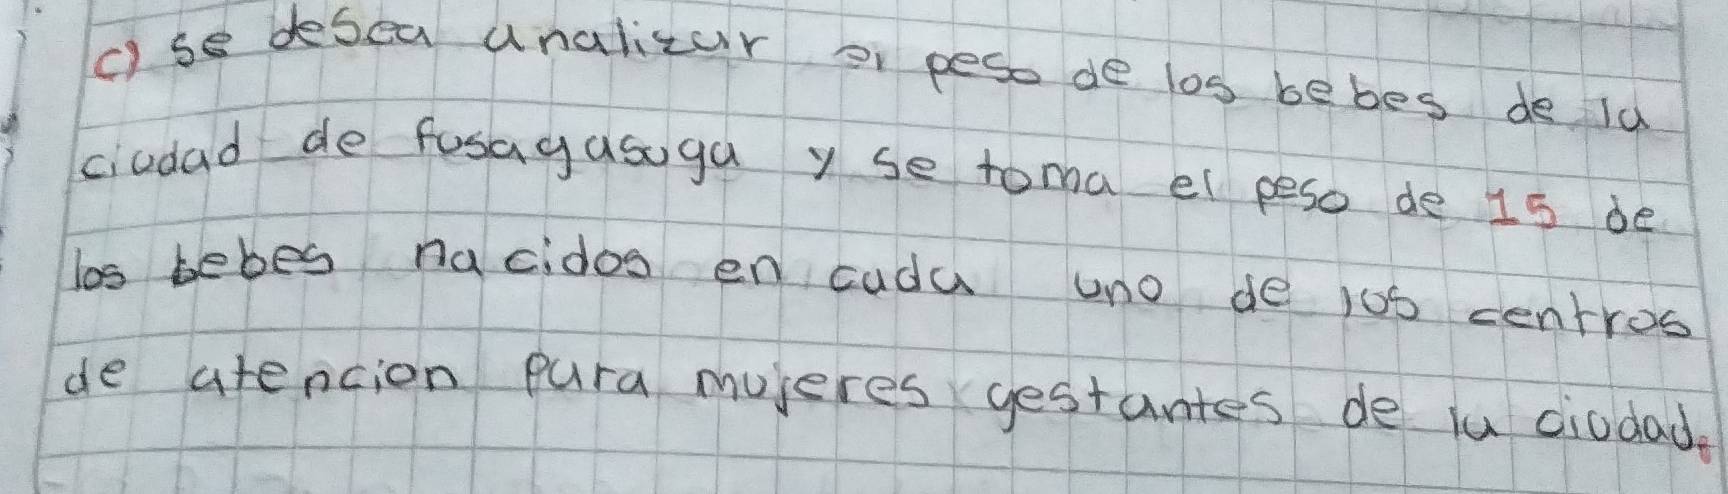 c) se desea analizar el peso de los bebes de la
ciudad de fusagasuga y se toma el peso de 15 de
los bebes nacidos en cada uno de los centros
de atencion para mujeres gestantes de la ciudad.